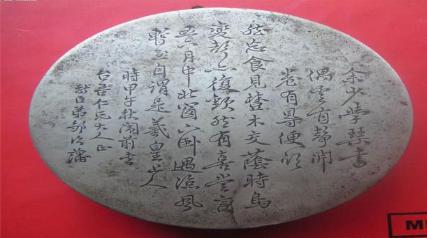 余少學琴書
偶愛首靜開
卷有得便欣
然忘食見樹木交蔭時鳥
變声亦復歡然有喜嘗言
五六月中北窗下卧遇涼風
暫至自謂是羲皇上人
時甲子秋闈前書
台岩仁兄大人正